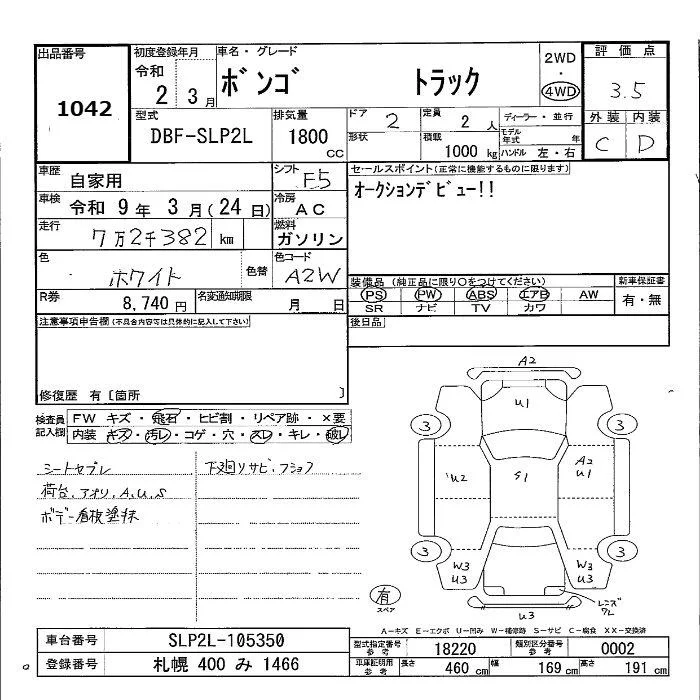 出品番号
1042
初度登録年月
令和
2 3月
車名・グレード
ボンゴ トラック
2WD
・
4WD
評価点
3.5
外装 内装
C D
型式
DBF-SLP2L
排気量
1800
cc
ドア 2
形状
定員 2 人
積載 1000 kg
ディーラー・並行
モデル年式 年
ハンドル 左・右
車歴
自家用
シフト F5
セールスポイント(正常に機能するものに限ります)
オークションデビュー!!
車検 令和 9年 3月(24日)
冷房 AC
走行
7万2千382 km
燃料
ガソリン
色
ホワイト
色替
色コード
A2W
装備品 (純正品に限り○をつけてください)
新車保証書
PS PW ABS エアB AW
SR ナビ TV カワ
有・無
R券
8,740 円
名変通知期限
月 日
後日品
注意事項申告欄(不具合内容等は具体的に記入して下さい)
修復歴 有〔箇所 〕
検査員記入欄
FW キズ・飛石・ヒビ割・リペア跡・×要
内装 キズ・汚レ・コゲ・穴・スレ・キレ・破レ
シートセブレ
下廻リサビ・フショク
荷台、アオリ、A、U、S
ボデー看板塗抹
A2
U1
3 3
U2
S1
A2
U1
3 3
W3
U3
W3
U3
レンズ
ワレ
U3
有
スペア
A-キズ E-エクボ U-凹み W-補修跡 S-サビ C-腐食 XX-交換済
車台番号 SLP2L-105350
登録番号 札幌 400 み 1466
型式指定番号
参考
18220
類別区分番号
参考
0002
車庫証明用
参考
長さ 460 cm
幅 169 cm
高さ 191 cm